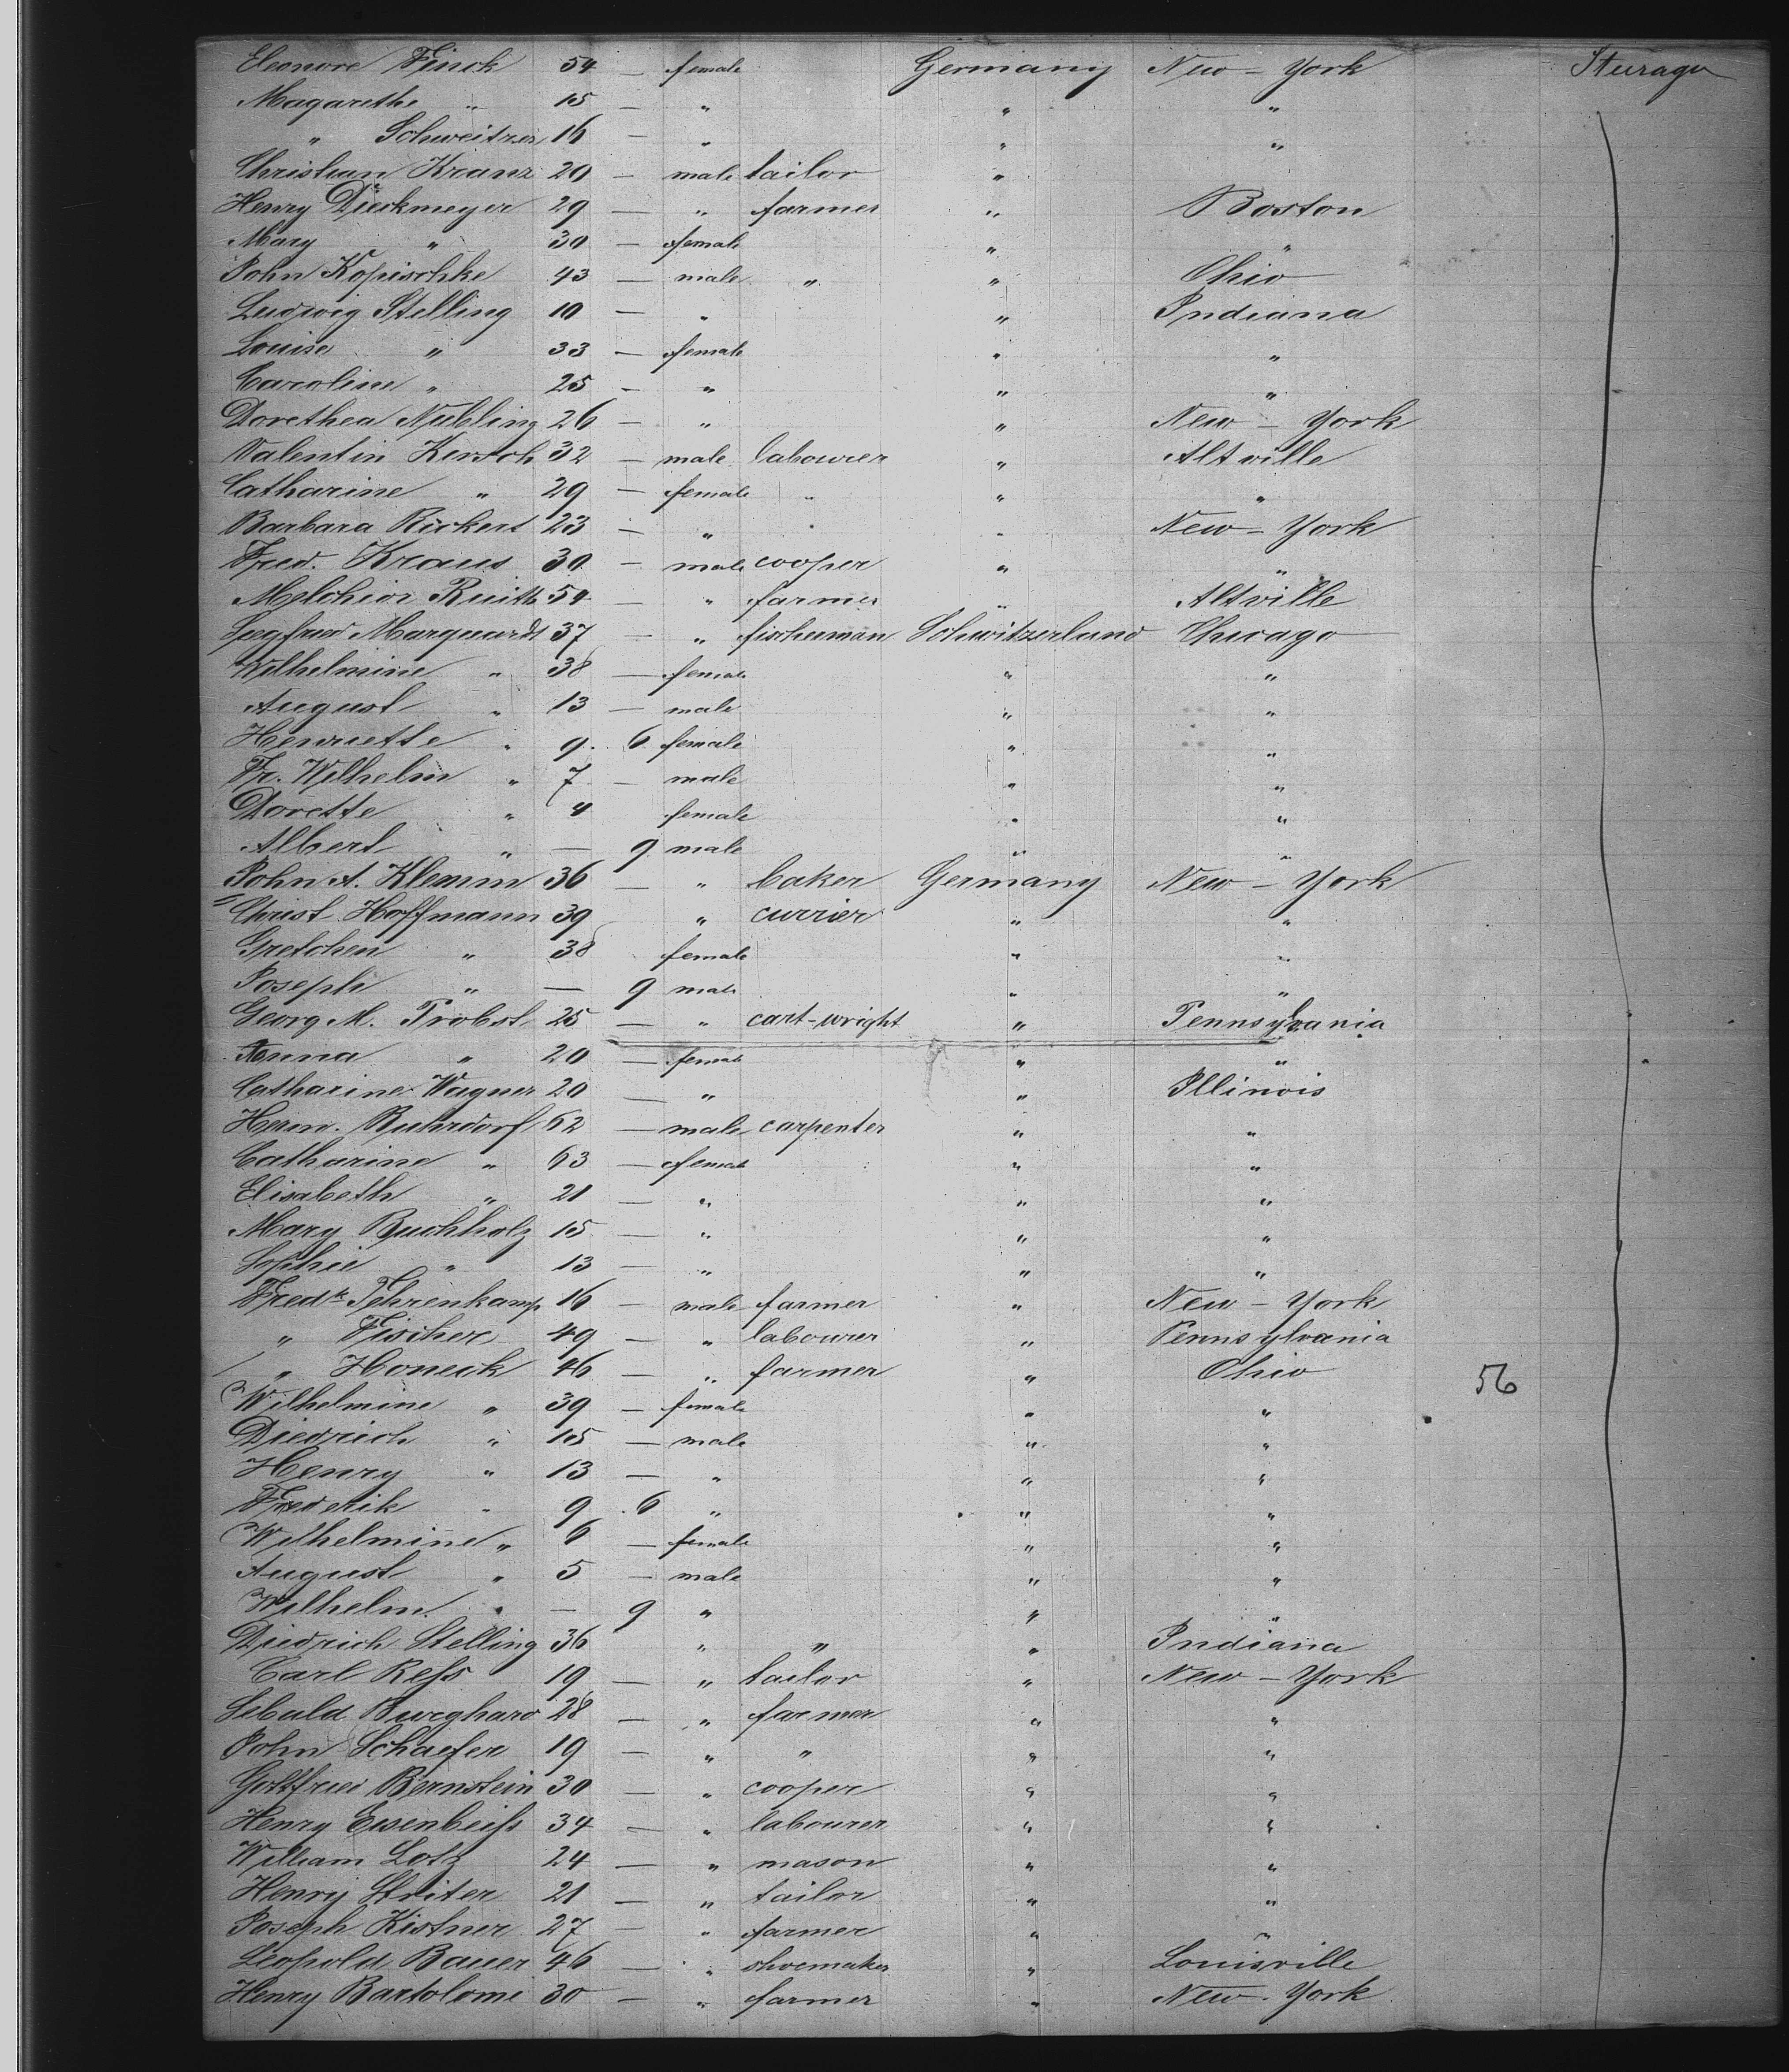 Eleonore Finck 54 — female Germany New-York Steerage
Magarethe " 15 — " " "
" Schweitzer 16 — " " "
Christian Kranz 29 — male tailor " "
Henry Dieckmeyer 29 — " farmer " Boston
Mary " 30 — female " "
John Kopischke 43 — male " " Ohio
Ludwig Stelling 10 — " " Indiana
Louise " 33 — female " "
Caroline " 25 — " " "
Dorethea Nubling 26 — " " New-York
Valentin Kersch 32 — male labourer " Altville
Catharine " 29 — female " " "
Barbara Rickert 23 — " " New-York
Fred. Kraus 30 — male cooper " "
Melchior 54 — " farmer " Altville
Marquardt 37 — " fischerman Schwitzerland Chicago
Wilhelmine " 38 — female " "
August " 13 — male " "
Henriette " 9 6 female " "
Fr. Wilhelm " 7 — male " "
Dorette " 4 female " "
Albert " — 9 male " "
John A. Klemm 36 — " baker Germany New-York
Christ. Hoffmann 39 " currier " "
Gretchen " 38 female " "
Joseph " — 9 male " "
Georg M. Probst 25 — " cart-wright " Pennsylvania
Anna " 20 — female " "
Catharine Wagner 20 — " " Illinois
Herm. Ruhrdorf 62 — male carpenter " "
Catharine " 63 — female " "
Elisabeth " 21 — " " "
Mary Buchholz 15 — " " "
Sophie " 13 — " " "
Fredk Fehrenkamp 16 — male farmer " New-York
" Fischer 49 — " labourer " Pennsylvania
" Honeck 46 — " farmer " Ohio 56
Wilhelmine " 39 — female " "
Diedrich " 15 — male " "
Henry " 13 — " " "
Frederik " 9 6 " " "
Wilhelmine " 6 — female " "
August " 5 — male " "
Wilhelm " — 9 " " "
Diedrich Stelling 36 " " " Indiana
Carl Reſs 19 — " tailor " New-York
Sebald Burghard 28 — " farmer " "
John Schaefer 19 — " " " "
Gottfried Bernstein 30 — " cooper " "
Henry Eisenbeiſs 34 — " labourer " "
William Lotz 24 — " mason " "
Henry Striter 21 — " tailor " "
Joseph Kistner 27 — " farmer " "
Leopold Bauer 46 — " shoemaker " Louisville
Henry Bartolome 30 — " farmer " New-York